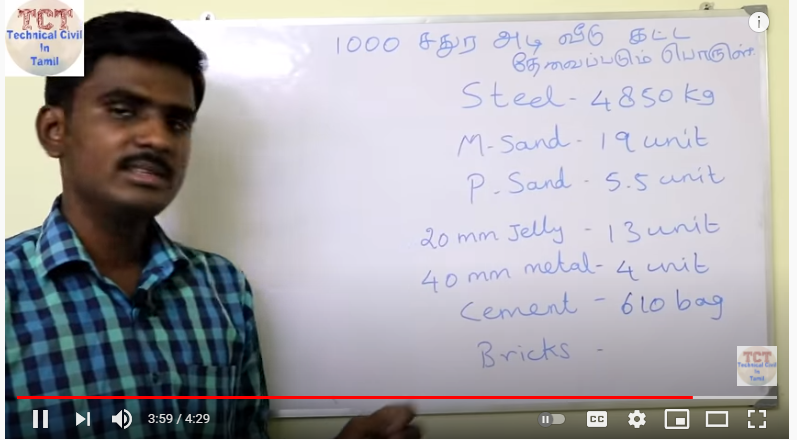 TCT
Technical Civil
In
Tamil
1000 சதுர அடி வீடு கட்ட
தேவைப்படும் பொருள்
Steel - 4850 kg
M-Sand - 19 unit
P-Sand - 5.5 unit
20 mm Jelly - 13 unit
40 mm metal - 4 unit
Cement - 610 bag
Bricks -
TCT
Technical Civil
In
Tamil
3:59 / 4:29
CC